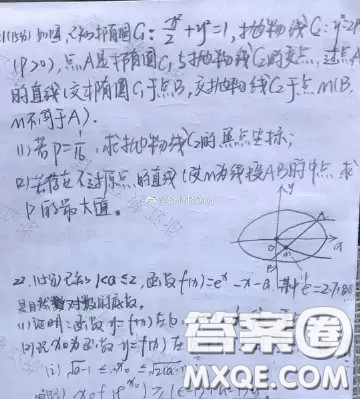 (15分)如图,已知椭圆C₁: x²/2+y²=1,抛物线C₂: y²=2p
(p>0),点A是椭圆C₁与抛物线C₂的交点,过点A
的直线l交椭圆C₁于点B,交抛物线C₂于点M(B,
M不同于A).
(1)若P=1/16,求抛物线C₂的焦点坐标;
(2)若存在不过原点的直线l使M为线段AB的中点,求
P的最大值。
@SHNBOYA
y
A
x
B
22.(15分)已知1<a≤2,函数f(x)=eˣ-x-a,其中e=2.718
是自然对数的底数.
(1)证明:函数y=f(x)在
(2)记x₀为函数y=f(x)在
(i)√a-1≤x₀≤√2(a-1)
答案圈
MXQE.COM